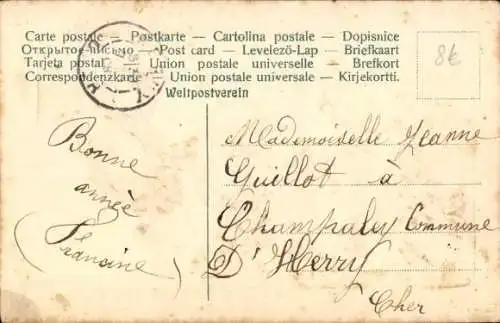 Carte postale — Postkarte — Cartolina postale — Dopisnice
Открытое письмо — Post card — Levelező-Lap — Briefkaart
Tarjeta postal — Union postale universelle — Brefkort
Correspondenzkarte — Union postale universale — Kirjekortti.
Weltpostverein
8€
Bonne
année
Francine
Mademoiselle Jeanne
Guillot à
Champaley Commune
D'Herry
Cher